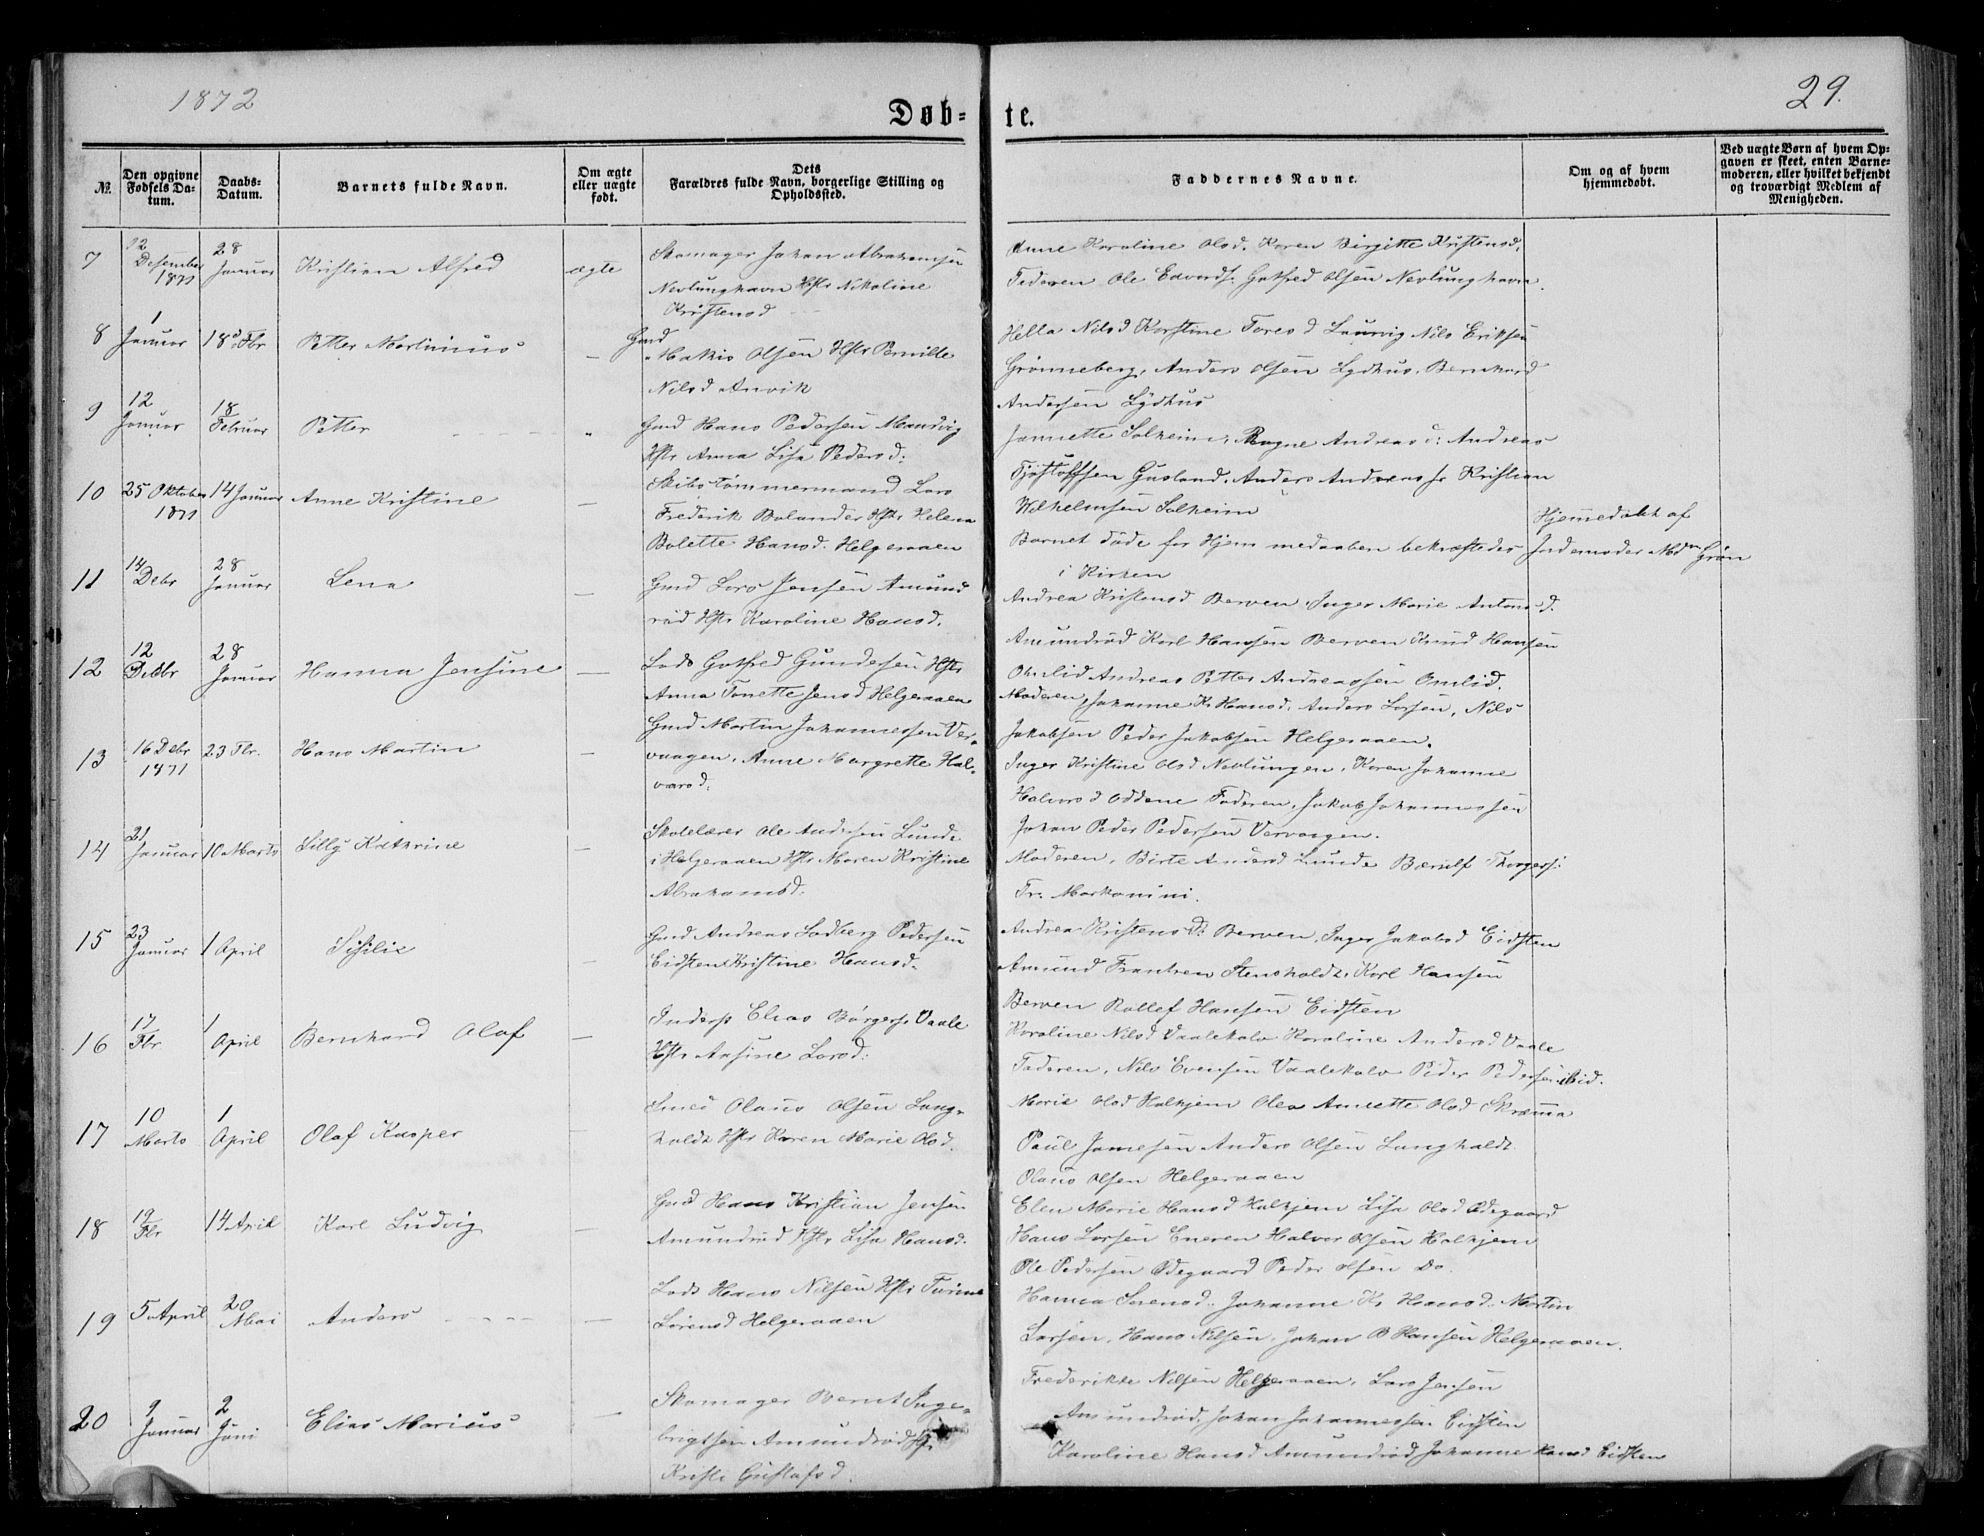 1872
29.
Døb-
te.
№.
Den opgivne Fødsels Datum.
Daabs-Datum.
Barnets fulde Navn.
Om ægte eller uægte født.
Dets Forældres fulde Navn, borgerlige Stilling og Opholdssted.
Faddernes Navne.
Om og af hvem hjemmedøbt.
Ved uægte Børn af hvem Opgaven er skeet, enten Barnemoderen, eller hvilket bekjendt og troværdigt Medlem af Menigheden.
7
12 Desember 1871
28 Januar
Kristian Alfred
ægte
Skomager Johan Abrahamsen
Nevlunghavn Hstr Nikoline
Kristensd
Anne Karoline Olsd. Karen Birgitte Kristensd.
Faderen Ole Edvards. Gotfred Olsen Nevlunghavn.
8
1 Januar
18d Fbr
Petter Martinius
—
Gmd
Makis Olsen Hstr Pernille
Nilsd Anvik
Hella Nilsd Karstine Toresd Laurvig Nils Eriksen
Grønneberg, Anders Olsen Lydhus. Bernhard
Andersen Lydhus
9
12 Januar
18 Februar
Petter
"
Gmd Hans Pedersen Mandvig
Hstr Anna Lisa Pedersd:
Jannette Solheim, Ragne Andreasd: Andreas
Tjøstolfsen Gusland. Anders Andreass. Kristian
Wilhelmsen Solheim
10
25 Oktober 1871
14 Januar
Anne Kristine
—
Skibstømmermand Lars
Frederik Bolander Hstr Helena
Bolette Hansd. Helgeraaen
Barnet døde før Hjemmedaaben bekræftedes
i Kirken
Hjemmedøbt af
Jordemoder Mdm Grøn
11
14 Debr
28 Januar
Lena
—
Gmd Lars Jensen Amund
rød Hstr Karoline Hansd.
Andrea Kristensd Berven. Inger Marie Antonsd.
Amundrød Karl Hansen Berven Knud Hansen
Omlid Andreas Petter Andreassen Omlid.
12
12 Debr
28 Januar
Hanna Jensine
—
Lods Gotfred Gundersen Hstr
Anna Tonette Jensd Helgeraaen
Moderen, Johanne K. Hansd. Anders Larsen, Nils
Jakobsen Peder Jakobsen Helgeraaen.
13
16 Debr 1871
23 Fbr.
Hans Martin
—
Gmd Martin Johannessen Ver-
vaagen. Anne Margrette Hal-
vorsd.
Inger Kristine Olsd Nevlungen. Karen Johanne
Halvorsd Oddene Faderen, Jakob Johannessen
Johan Peder Pedersen Vervaagen.
14
21 Januar
10 Marts
Lilly Kathrine
—
Skolelærer Ole Andersen Lunde
i Helgeraaen Hstr Maren Kristine
Abrahamsd.
Moderen, Birte Andersd Lunde Bærulf Thorgers:
Fr. Markanini.
15
23 Januar
1 April
Sisilie
—
Gmd Andreas Lodberg Pedersen
Eidsten Kristine Hansd.
Andrea Kristensd: Berven. Inger Jakobsd Eidsten
Amund Frantzen Stensholdt. Karl Hansen
Berven Rollef Hansen Eidsten
16
17 Fbr
1 April
Bernhard Olaf
—
Inders Elias Børgers. Vaale
Hstr Aasine Larsd:
Karoline Nilsd Vaalekalv Karoline Andersd Vaale
Faderen, Nils Evensen Vaalekalv Peder Pedersen ibid.
17
10 Marts
1 April
Olaf Kasper
Smed Olaus Olsen Lang-
holdt Hstr Karen Marie Olsd.
Marie Olsd Halhjem Olea Annette Olsd Skræma
Paul Jamesen Anders Olsen Langholdt
Olaus Olsen Helgeraaen
18
19 Fbr
14 April
Karl Ludvig
—
Gmd Hans Kristian Jensen
Amundrød Hstr Lisa Hansd.
Elen Marie Hansd Halhjem Lisa Olsd Ødegaard
Hans Larsen Eneren Halvor Olsen Halhjem
Ole Pedersen Ødegaard Peder Olsen Do.
19
5 April
20 Mai
Anders
—
Lods Hans Nilsen Hstr Turine
Sørensd Helgeraaen
Hanna Sørensd. Johanne K. Hansd. Martin
Larsen, Hans Nilsen, Johan B Hansen Helgeraaen.
20
9 Januar
2 Juni
Elias Marius
—
Skomager Bernt Inge-
brigtsen Amundrød Hstr
Kristi Gustafsd.
Frederikke Nilsen Helgeraaen, Lars Jensen
Amundrød, Johan Johannessen Eidsten
Karoline Hansd Amundrød Johanne Hansd Eidsten